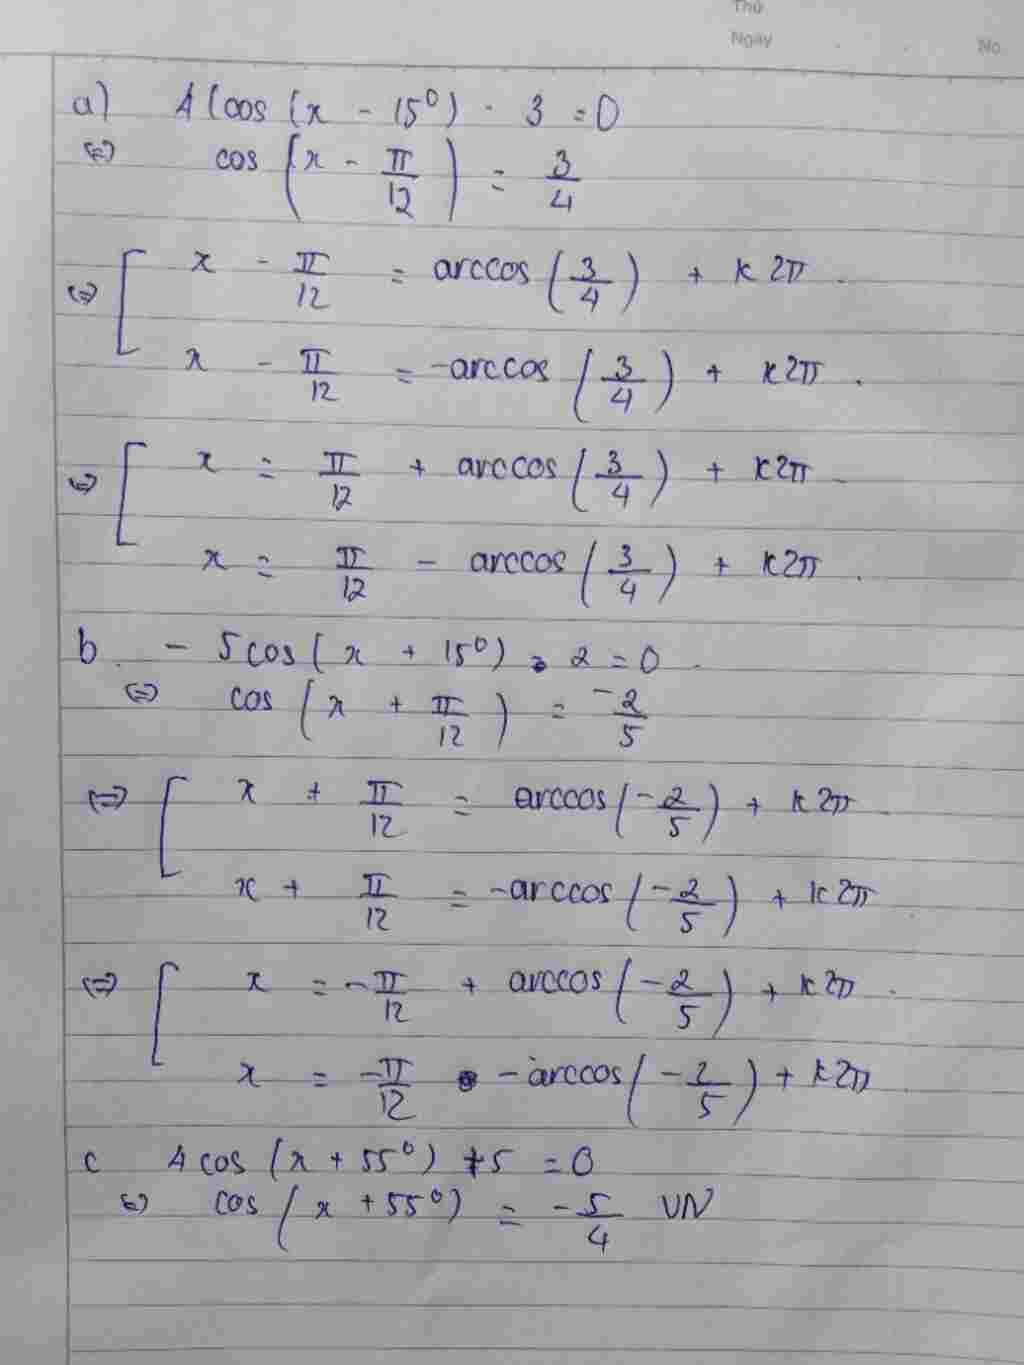 Thứ
Ngày
No.
a) 4(cos (x - 15⁰) - 3 = 0
⇔ cos (x - π/12) = 3/4
⇔ [ x - π/12 = arccos (3/4) + k2π.
x - π/12 = -arccos (3/4) + k2π.
⇔ [ x = π/12 + arccos (3/4) + k2π.
x = π/12 - arccos (3/4) + k2π.
b. - 5cos (x + 15⁰) - 2 = 0.
⇔ cos (x + π/12) = -2/5
⇔ [ x + π/12 = arccos (-2/5) + k2π.
x + π/12 = -arccos (-2/5) + k2π.
⇔ [ x = -π/12 + arccos (-2/5) + k2π.
x = -π/12 - arccos (-2/5) + k2π
c 4cos (x + 55⁰) + 5 = 0
⇔ cos (x + 55⁰) = -5/4 VN